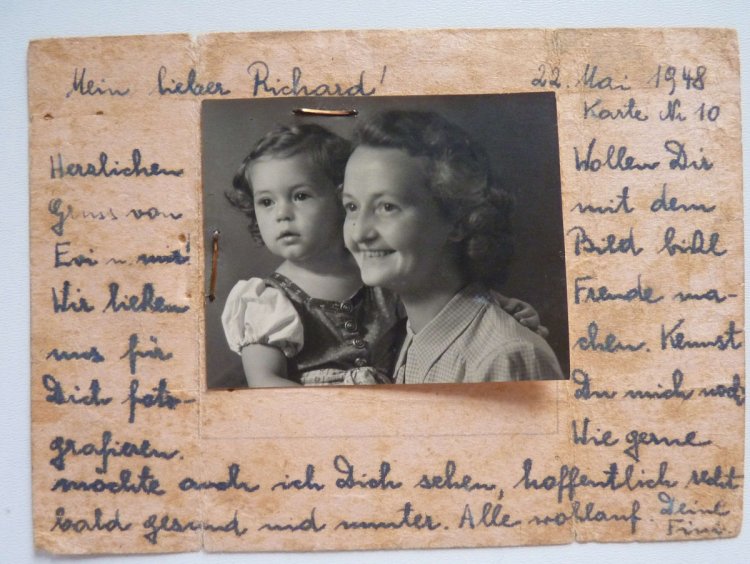 Mein lieber Richard!
22. Mai 1948
Karte Nr 10
Herzlichen
Gruss von
Evi u. mir!
Wir ließen
uns für
Dich foto-
grafieren.
Wollen Dir
mit dem
Bild bißl
Freude ma-
chen. Kennst
Du mich noch
Wie gerne
möchte auch ich Dich sehen, hoffentlich recht
bald gesund und munter. Alle wohlauf. Deine